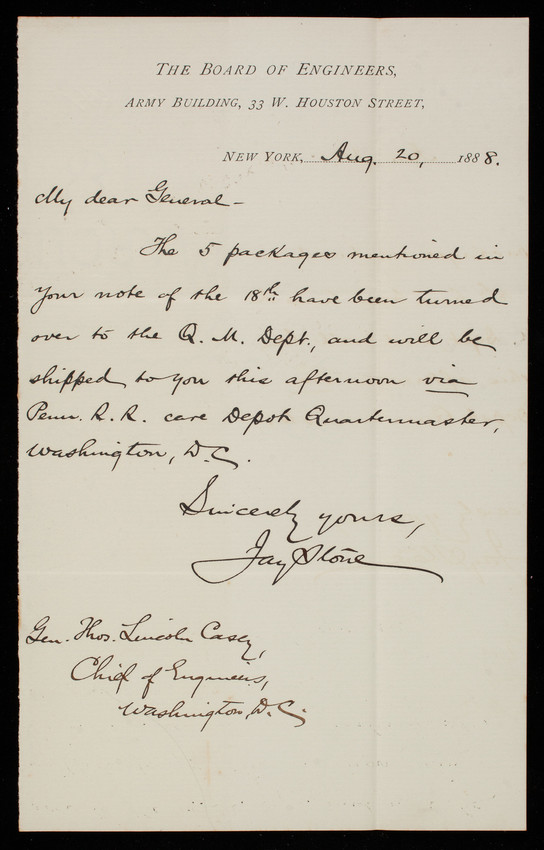 THE BOARD OF ENGINEERS,
ARMY BUILDING, 33 W. HOUSTON STREET,
NEW YORK, Aug. 20, 1888.
My dear General -
The 5 packages mentioned in
your note of the 18th have been turned
over to the Q. M. Dept., and will be
shipped to you this afternoon via
Penn. R. R. care Depot Quartermaster,
Washington, D.C.
Sincerely yours,
Jay Stone
Gen. Thos. Lincoln Casey,
Chief of Engineers,
Washington, D.C.